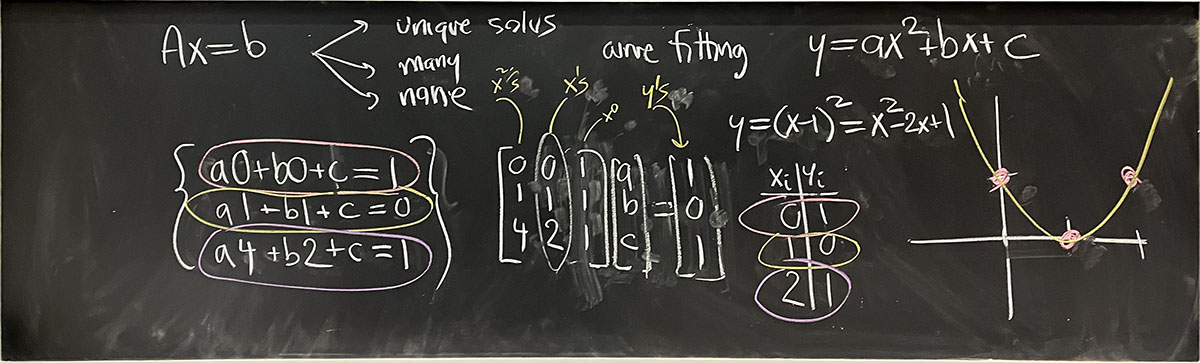 Ax=b
unique solns
many
none
curve fitting
y=ax²+bx+c
x²'s x¹'s x⁰ y's
y=(x-1)²=x²-2x+1
a0+b0+c=1
a1+b1+c=0
a4+b2+c=1
0 0 1 a 1
1 1 1 b = 0
4 2 1 c 1
xᵢ yᵢ
0 1
1 0
2 1